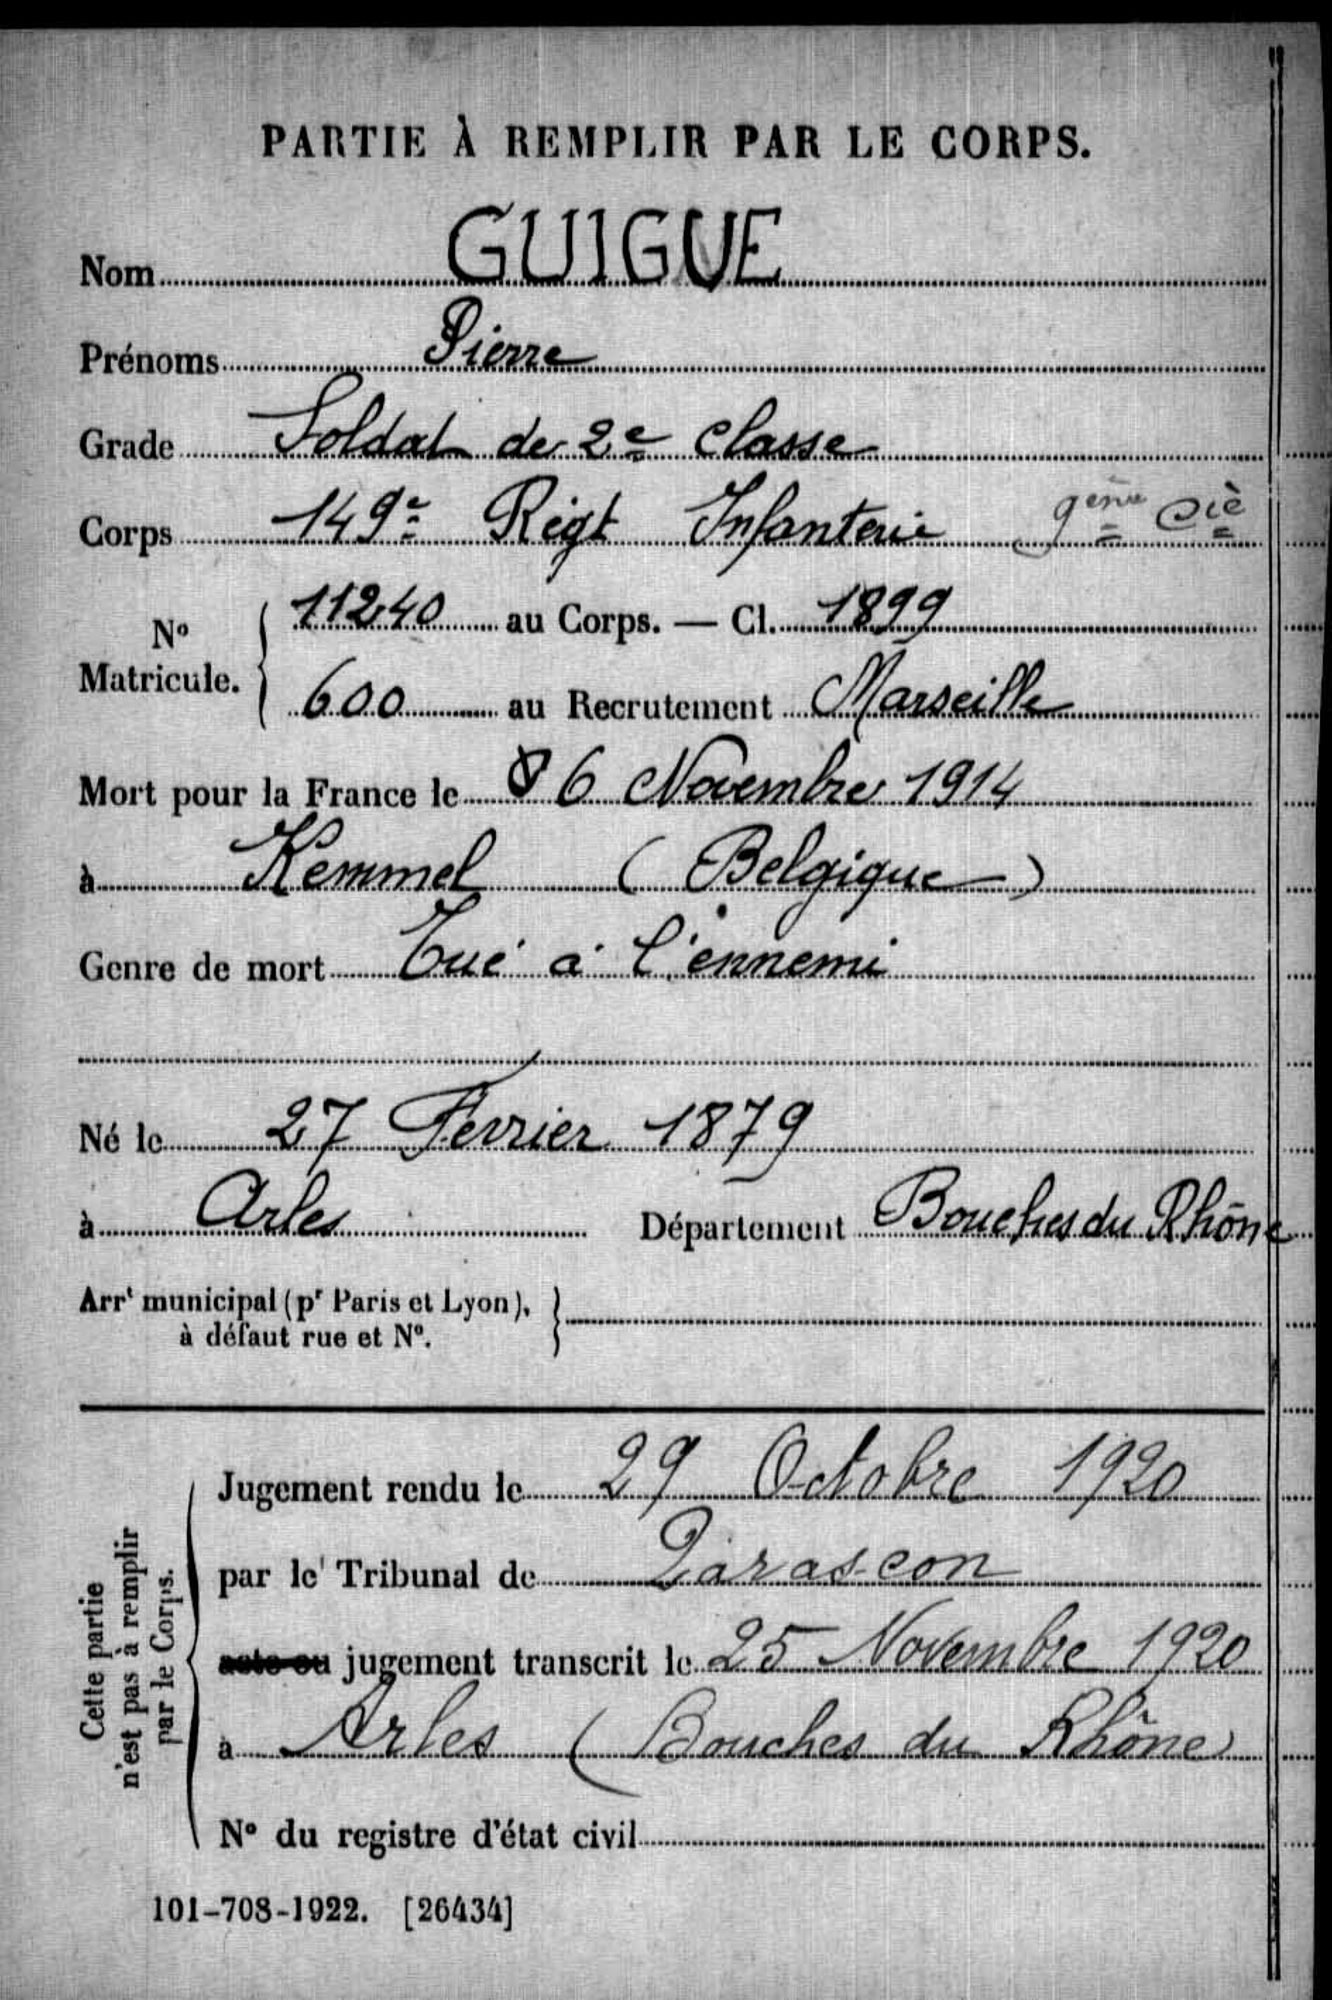 PARTIE À REMPLIR PAR LE CORPS.
Nom GUIGUE
Prénoms Pierre
Grade Soldat de 2e classe
Corps 149e Régt Infanterie 9ème Cie
No Matricule. { 11240 au Corps. — Cl. 1899
600 au Recrutement Marseille
Mort pour la France le 6 Novembre 1914
à Kemmel (Belgique)
Genre de mort Tué à l'ennemi
Né le 27 Février 1879
à Arles Département Bouches du Rhône
Arrt municipal (pr Paris et Lyon),
à défaut rue et No.
Cette partie
n'est pas à remplir
par le Corps.
Jugement rendu le 29 Octobre 1920
par le Tribunal de Tarascon
acte ou jugement transcrit le 25 Novembre 1920
à Arles (Bouches du Rhône)
No du registre d'état civil
101-708-1922. [26434]